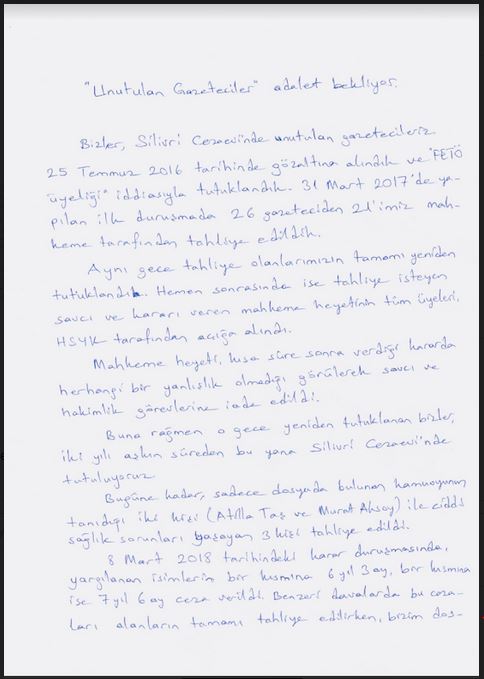 "Unutulan Gazeteciler" adalet bekliyor.
Bizler, Silivri Cezaevi'nde unutulan gazetecileriz.
25 Temmuz 2016 tarihinde gözaltına alındık ve "FETÖ
üyeliği" iddiasıyla tutuklandık. 31 Mart 2017'de ya-
pılan ilk duruşmada 26 gazeteciden 21'imiz mah-
keme tarafından tahliye edildik.
Aynı gece tahliye olanlarımızın tamamı yeniden
tutuklandık. Hemen sonrasında ise tahliye isteyen
savcı ve kararı veren mahkeme heyetinin tüm üyeleri,
HSYK tarafından açığa alındı.
Mahkeme heyeti, kısa süre sonra verdiği kararda
herhangi bir yanlışlık olmadığı görülerek savcı ve
hakimlik görevlerine iade edildi.
Buna rağmen o gece yeniden tutuklanan bizler,
iki yılı aşkın süreden bu yana Silivri Cezaevi'nde
tutuluyoruz.
Bugüne kadar, sadece dosyada bulunan kamuoyunun
tanıdığı iki kişi (Atilla Taş ve Murat Aksoy) ile ciddi
sağlık sorunları yaşayan 3 kişi tahliye edildi.
8 Mart 2018 tarihindeki karar duruşmasında,
yargılanan isimlerin bir kısmına 6 yıl 3 ay, bir kısmına
ise 7 yıl 6 ay ceza verildi. Benzeri davalarda bu ceza-
ları alanların tamamı tahliye edilirken, bizim dos-